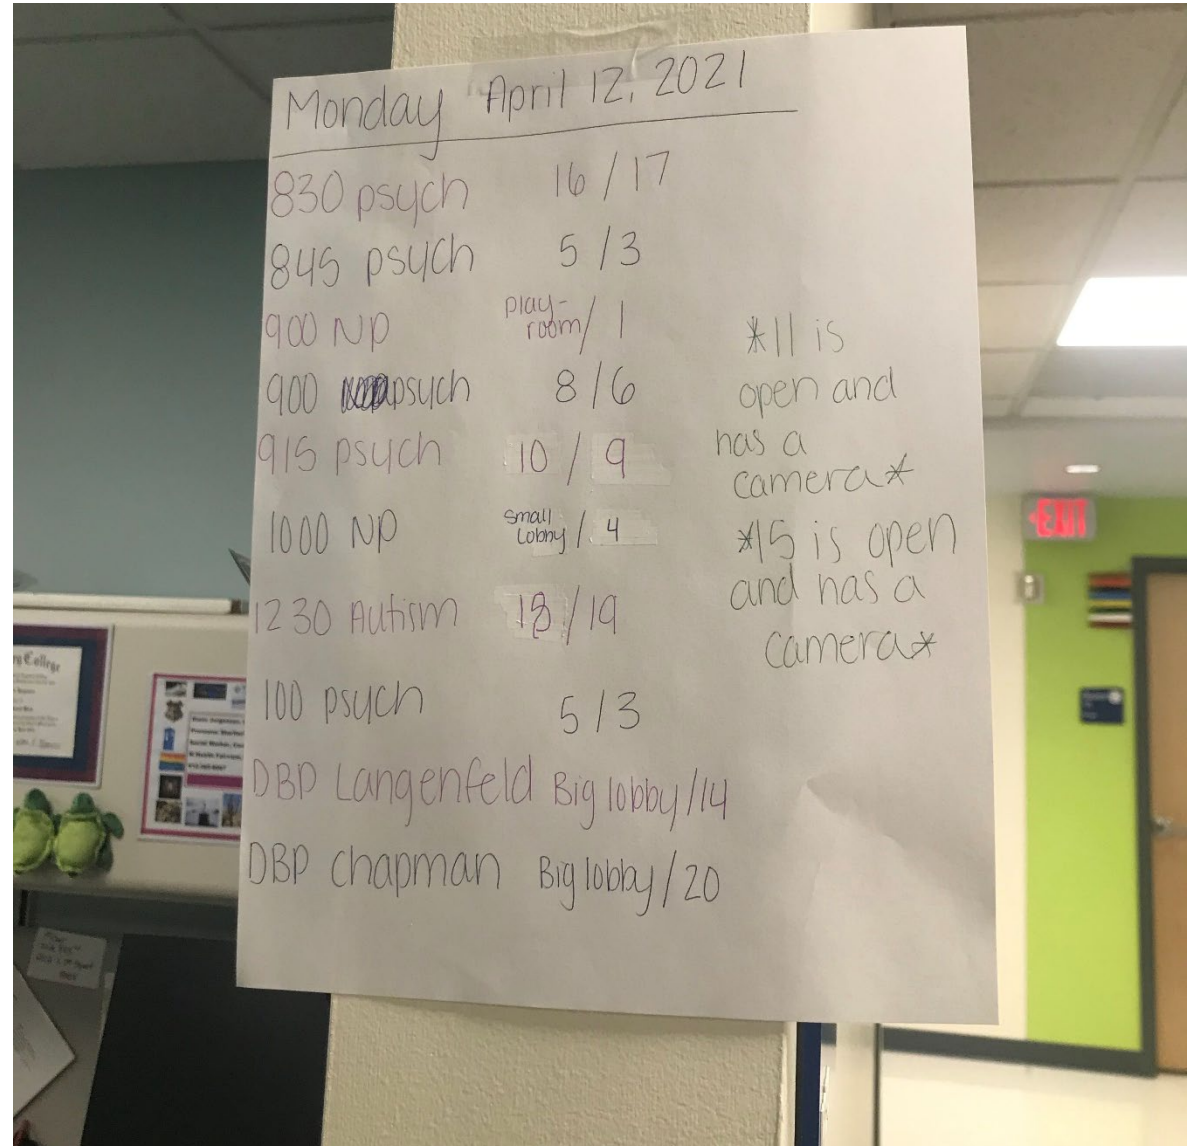 Monday April 12, 2021
830 psych 16/17
845 psych 5/3
900 NP play-room/1
900 psych 8/6
915 psych 10/9
1000 NP small lobby/4
1230 Autism 18/19
100 psych 5/3
DBP Langenfeld Big lobby/14
DBP Chapman Big lobby/20
*11 is
open and
has a
camera*
*15 is open
and has a
camera*
EXIT
College